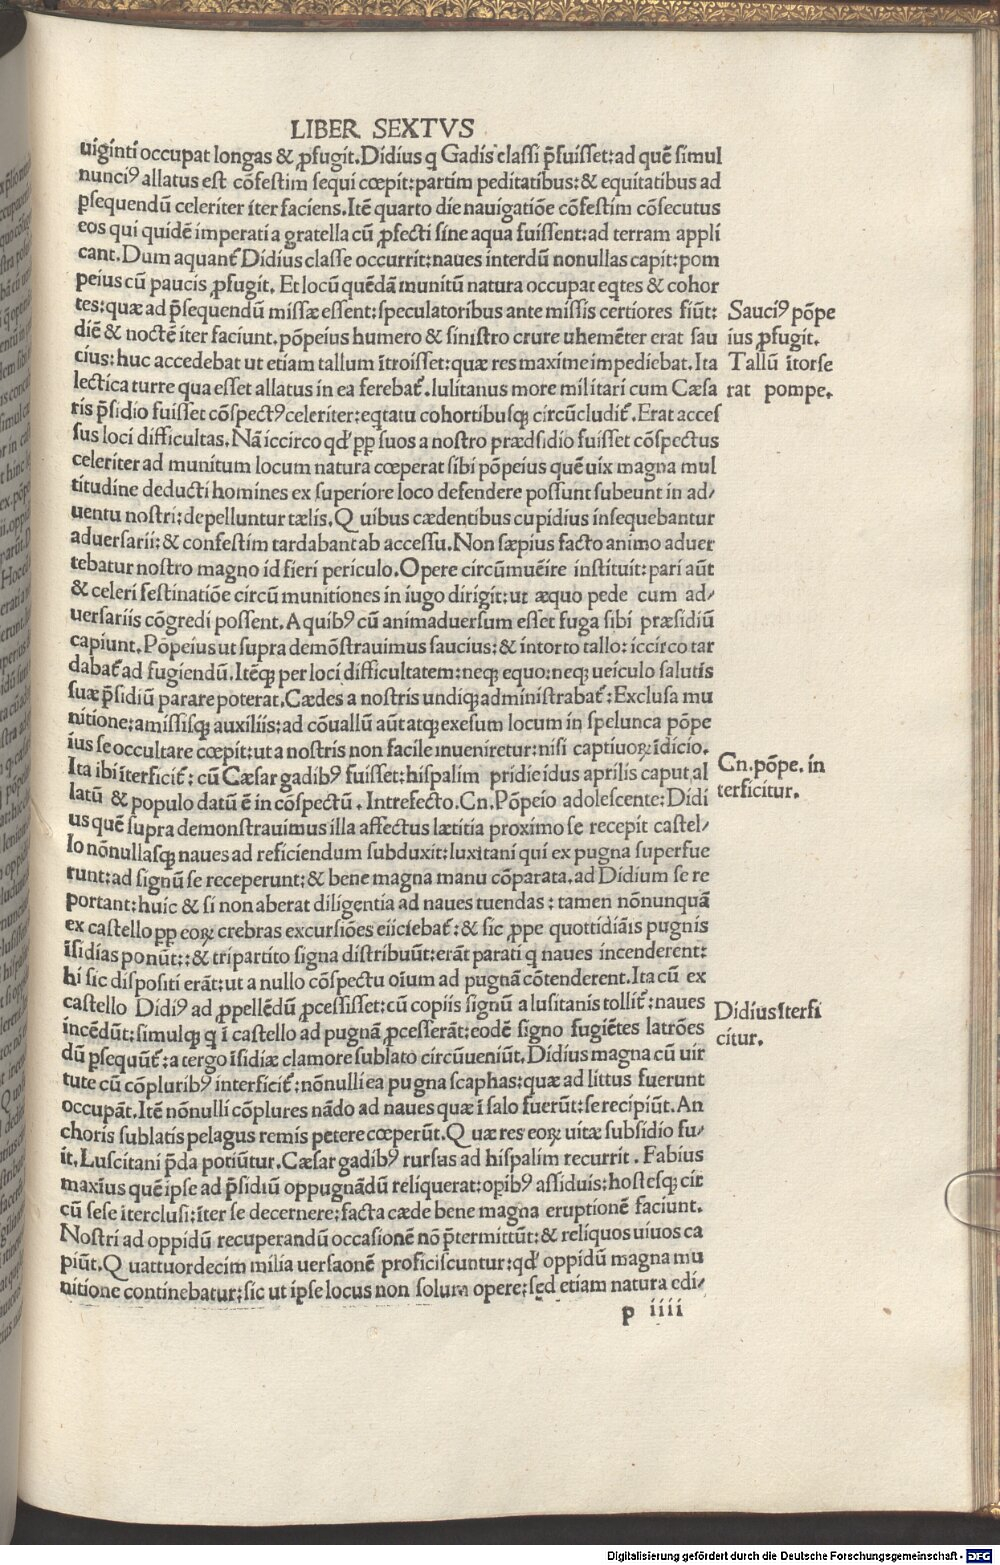 LIBER SEXTVS
uiginti occupat longas & ꝓfugit. Didius q Gadis classi p̄fuisset: ad quē simul
nunciꝰ allatus est cōfestim sequi cœpit: partim peditatibus: & equitatibus ad
ꝑsequendū celeriter iter faciens. Itē quarto die nauigatiōe cōfestim cōsecutus
eos qui quidē imperati a gratella cū ꝓfecti sine aqua fuissent: ad terram appli
cant. Dum aquant̄ Didius classe occurrit: naues interdū nonullas capit: pom
peius cū paucis ꝓfugit. Et locū quēdā munitū natura occupat eqtes & cohor
tes: quæ ad p̄sequendū missæ essent: speculatoribus ante missis certiores fiūt:
diē & noctē iter faciunt. pōpeius humero & sinistro crure uhemēter erat sau
cius: huc accedebat ut etiam tallum ītroisset: quæ res maxime impediebat. Ita
lectica turre qua esset allatus in ea ferebat̄. lulitanus more militari cum Cæsa
ris p̄sidio fuisset cōspectꝰ celeriter: eqtatu cohortibusqꝫ circūcludit̄. Erat acces
sus loci difficultas. Nā iccirco qd' pp suos a nostro prædsidio fuisset cōspectus
celeriter ad munitum locum natura cœperat sibi pōpeius quē uix magna mul
titudine deducti homines ex superiore loco defendere possunt subeunt in ad/
uentu nostri: depelluntur tælis. Q uibus cædentibus cupidius insequebantur
aduersarii: & confestim tardabant ab accessu. Non sæpius facto animo aduer
tebatur nostro magno id fieri periculo. Opere circūmuēire instituit: pari aūt
& celeri festinatiōe circū munitiones in iugo dirigit: ut æquo pede cum ad/
uersariis cōgredi possent. A quibꝰ cū animaduersum esset fuga sibi præsidiū
capiunt. Pōpeius ut supra demōstrauimus saucius: & intorto tallo: iccirco tar
dabat̄ ad fugiendū. Itēqꝫ per loci difficultatem: neqꝫ equo: neqꝫ ueículo salutis
suæ p̄sidiū parare poterat. Cædes a nostris undiqꝫ administrabat̄: Exclusa mu
nitione: amissisqꝫ auxiliis: ad cōuallū aūt atqꝫ exesum locum in spelunca pōpe
ius se occultare cœpit: ut a nostris non facile inueniretur: nisi captiuoꝝ īdicio.
Ita ibi īterficit̄: cū Cæsar gadibꝰ fuisset: hispalim pridie idus aprilis caput al
latū & populo datū ē in cōspectū. Intrefecto. Cn. Pōpeio adolescente: Didi
us quē supra demonstrauimus illa affectus lætitia proximo se recepit castel/
lo nōnullasqꝫ naues ad reficiendum subduxit: luxitani qui ex pugna superfue
runt: ad signū se receperunt: & bene magna manu cōparata. ad Didium se re
portant: huic & si non aberat diligentia ad naues tuendas: tamen nōnunquā
ex castello pp eoꝝ crebras excursiōes eiiciebat̄: & sic ꝓpe quottidiāis pugnis
īsidias ponūt:: & tripartito signa distribuūt: erāt parati q naues incenderent:
hi sic dispositi erāt: ut a nullo cōspectu oīum ad pugnā cōtenderent. Ita cū ex
castello Didiꝰ ad ꝓpellēdū ꝓcessisset: cū copiis signū a lusitanis tollit̄: naues
incēdūt: simulqꝫ q ī castello ad pugnā ꝓcesserāt: eodē signo fugiētes latrōes
dū ꝑsequūt̄: a tergo īsidiæ clamore sublato circūueniūt. Didius magna cū uir
tute cū cōpluribꝰ interficit̄: nōnulli ea pugna scaphas: quæ ad littus fuerunt
occupāt. Itē nōnulli cōplures nādo ad naues quæ ī salo fuerūt: se recipiūt. An
choris sublatis pelagus remis petere cœperūt. Q uæ res eoꝝ uitæ subsidio fu/
it. Luscitani p̄da potiūtur. Cæsar gadibꝰ rursus ad hispalim recurrit. Fabius
maxīus quē ipse ad p̄sidiū oppugnādū reliquerat: opibꝰ assiduis: hostesqꝫ cir
cū sese iterclusi: īter se decernere: facta cæde bene magna eruptionē faciunt.
Nostri ad oppidū recuperandū occasionē nō p̄termittūt: & reliquos uiuos ca
piūt. Q uattuordecim milia uersaonē proficiscuntur: qd' oppidū magna mu
nitione continebatur: sic ut ipse locus non solum opere: sed etiam natura edi/
p iiii
Sauciꝰ pōpe
ius ꝓfugit.
Tallū ītorse
rat pompe.
Cn. pōpe. in
terficitur.
Didius īterfi
citur.
Digitalisierung gefördert durch die Deutsche Forschungsgemeinschaft - DFG